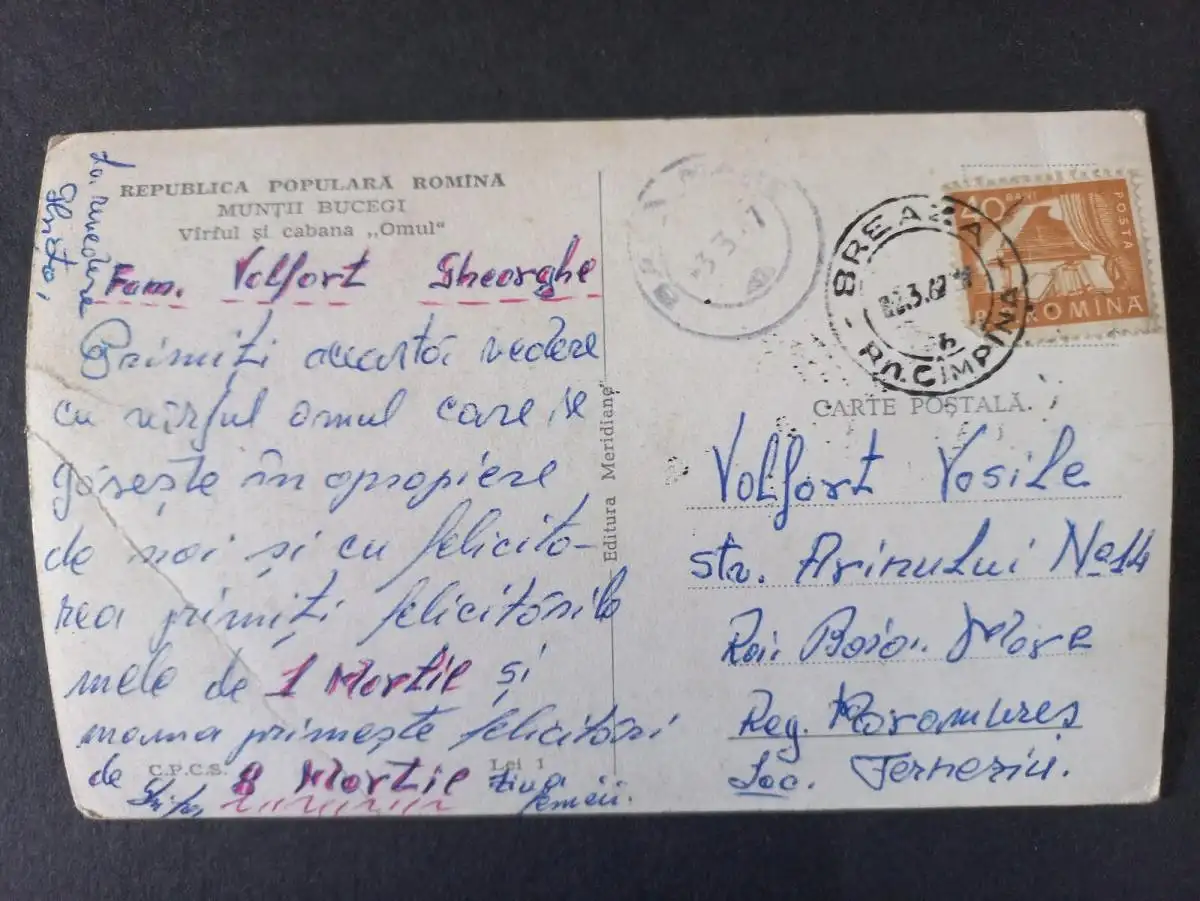 REPUBLICA POPULARĂ ROMÎNĂ
MUNȚII BUCEGI
Vîrful și cabana „Omul“
La revedere
Fam. Volfort Gheorghe
Primiți această vedere
cu vîrful omul care se
găsește în apropiere
de noi și cu felicita-
rea primiți felicitările
mele de 1 Martie și
mama primește felicitări
de 8 Martie Ziua
femeii.
C.P.C.S. Lei 1
Editura Meridiane
40 BANI
POSTA
ROMINA
BREAZA
R.O. CÎMPINA
CARTE POȘTALĂ
Volfort Vasile
str. Arinului No 14
Rai. Baia Mare
Reg. Maramureș
Loc. Ferneziu.